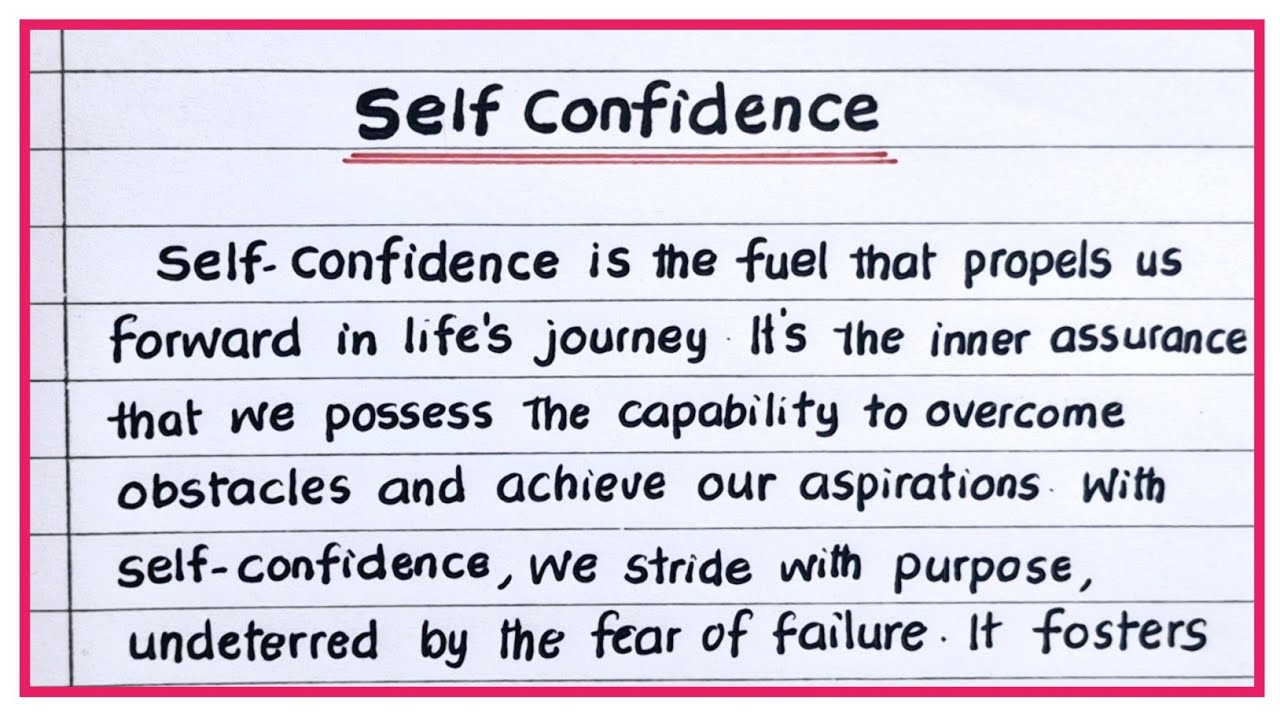 Self Confidence
Self-Confidence is the fuel that propels us
forward in life's journey. It's the inner assurance
that we possess the capability to overcome
obstacles and achieve our aspirations. With
self-confidence, we stride with purpose,
undeterred by the fear of failure. It fosters